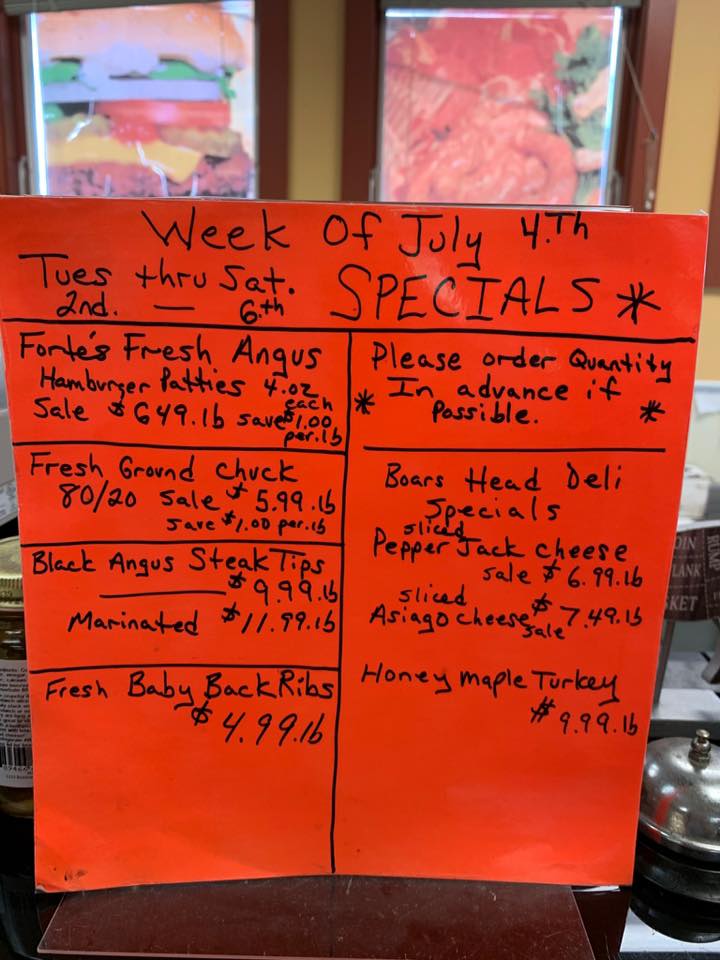 Week Of July 4.Th
Tues thru Sat.
2nd. — 6.th
SPECIALS *
Forte's Fresh Angus
Hamburger Patties 4.oz
each
Sale $649.lb save $1.00
per.lb
Fresh Ground Chuck
80/20 Sale $5.99.lb
save $1.00 per.lb
Black Angus Steak Tips
$9.99.lb
Marinated $11.99.lb
Fresh Baby Back Ribs
$4.99.lb
Please order Quantity
* In advance if *
Possible.
Boars Head Deli
Specials
sliced
Pepper Jack cheese
sale $6.99.lb
sliced
Asiago cheese $7.49.lb
sale
Honey maple Turkey
$9.99.lb